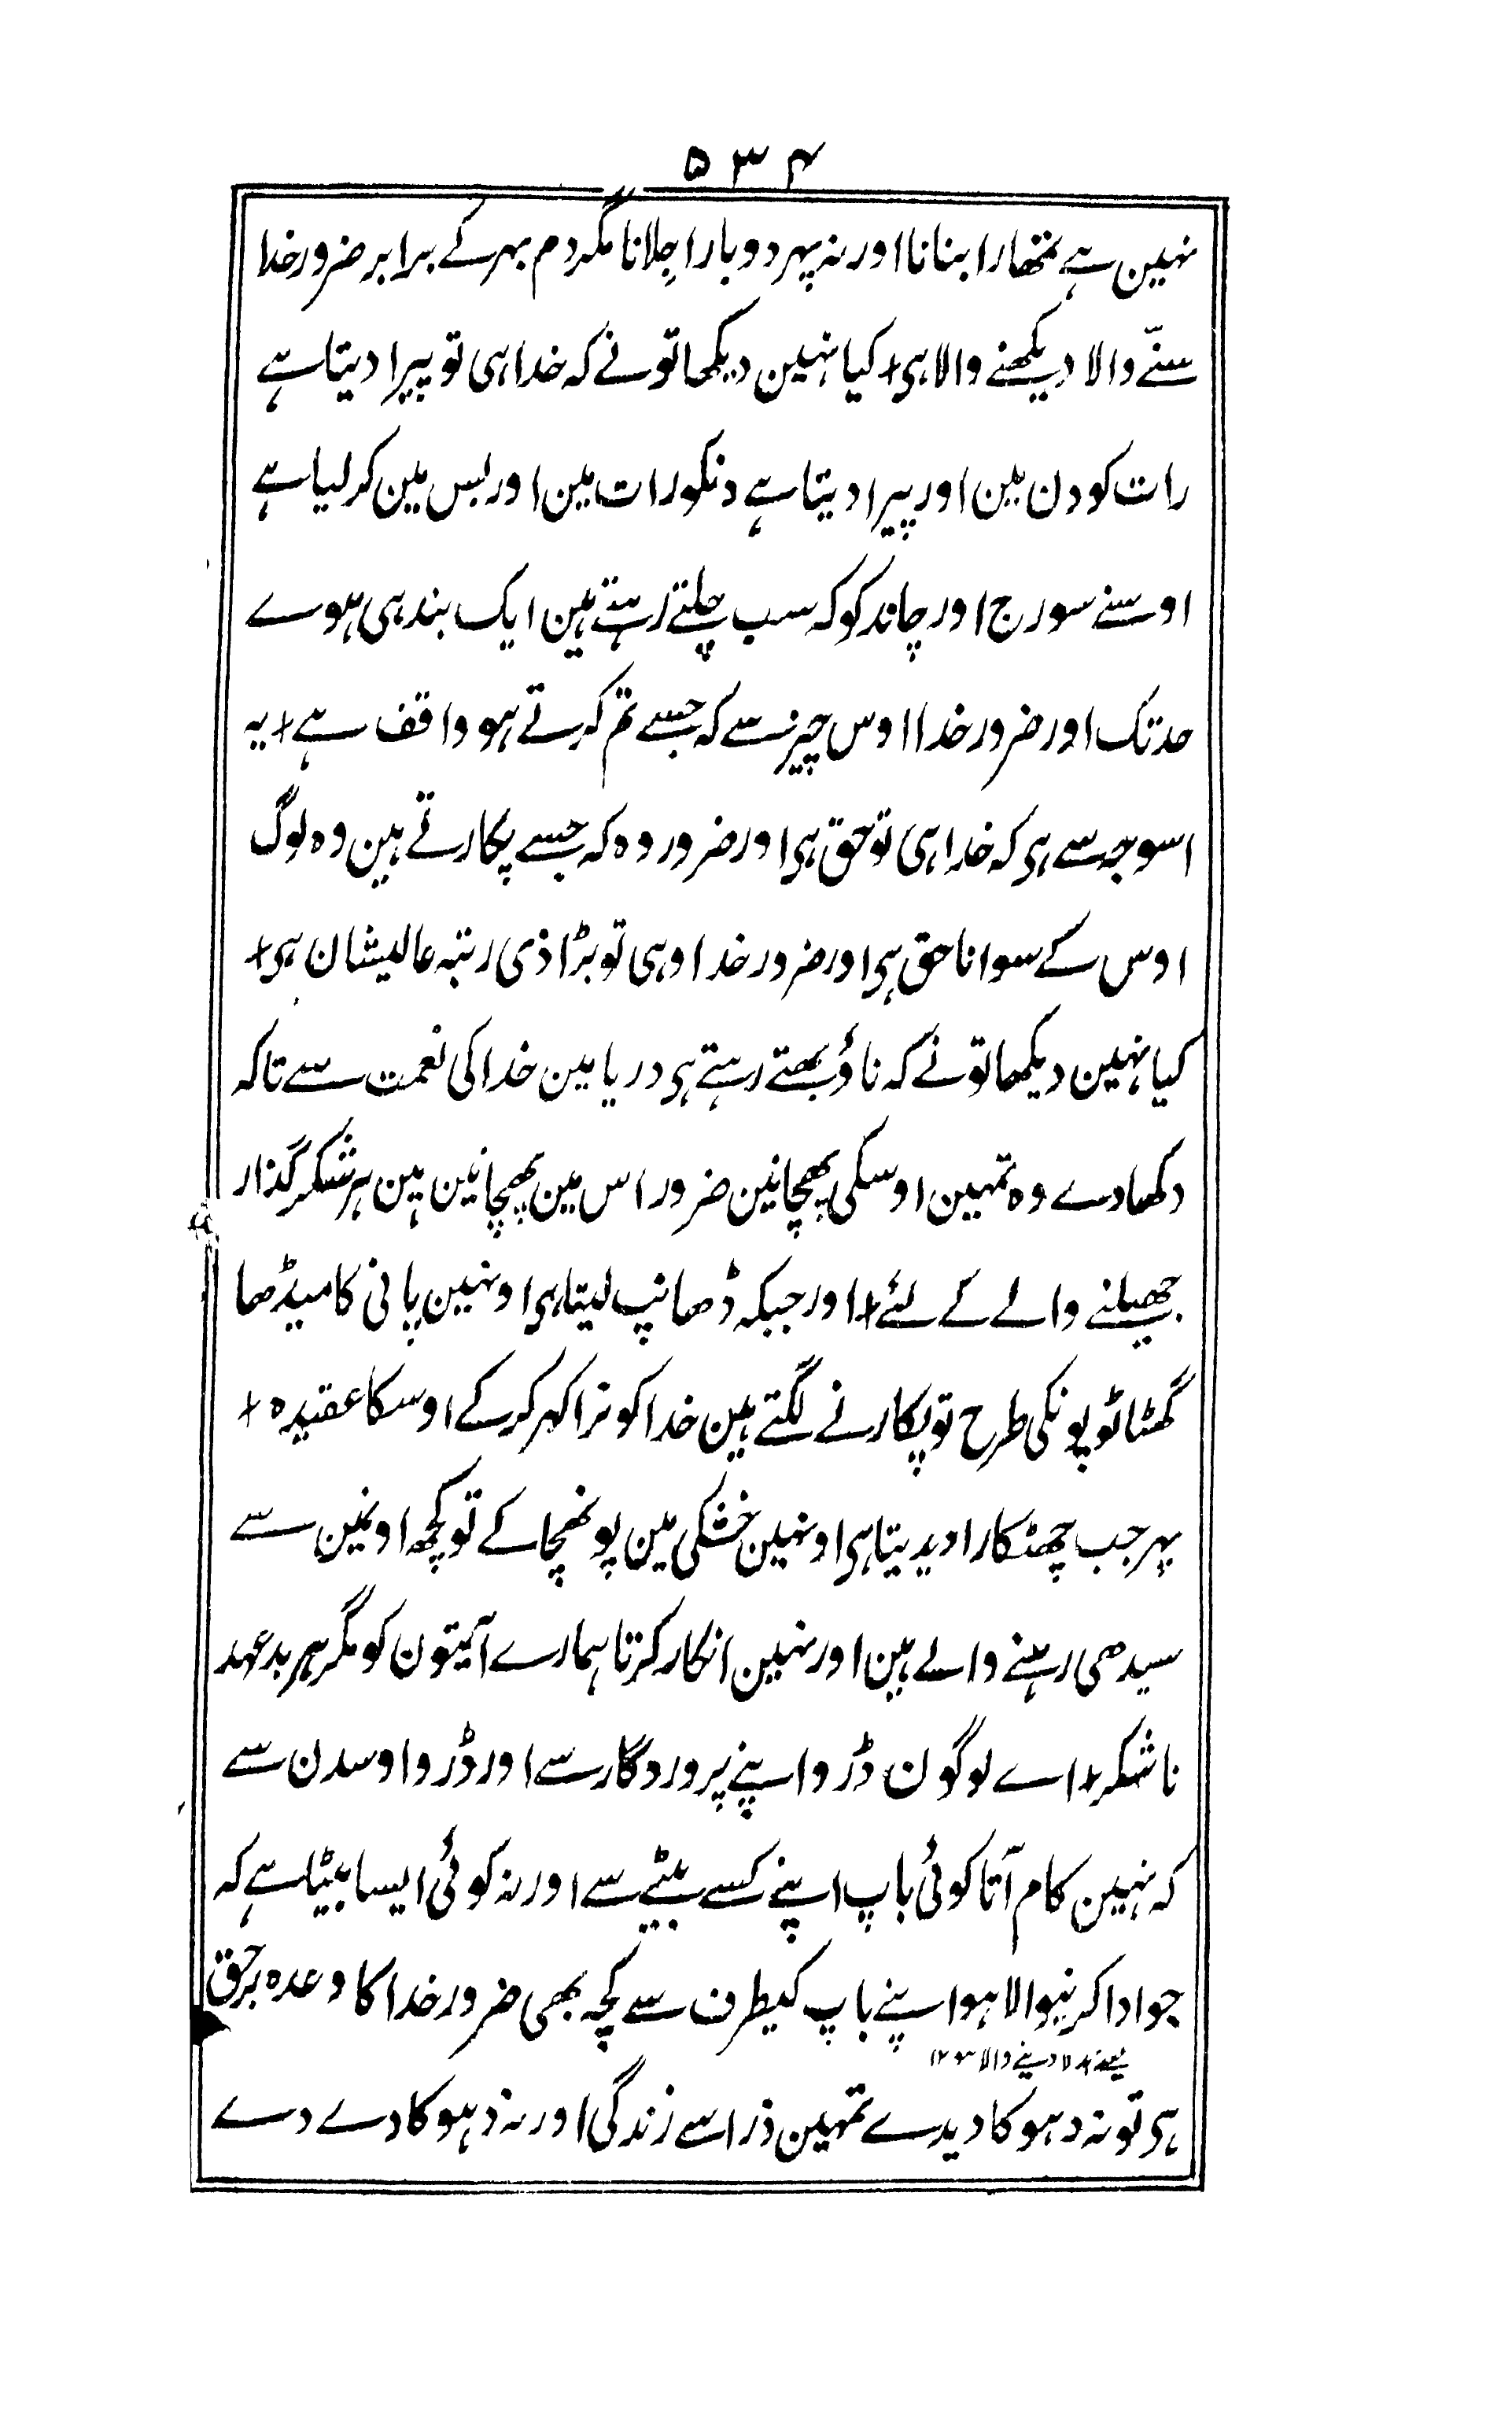 ۵۳۴
نہین ہے تمھارا بنانا اور نہ پہر دوبارا جِلانا مگر دم بہر کے برابر ضرور خدا
سنّے والا دیکھنے والا ہی + کیا نہین دیکھا تونے کہ خدا ہی تو پیرا دیتا ہے
رات کو دن مین اور پیرا دیتا ہے دنکو رات مین اور بس مین کر لیا ہے
اوسنے سورج اور چاند کو کہ سب چلتے رہتے ہین ایک بندہی ہوے
حد تک اور ضرور خدا اوس چیز سے کہ جسے تم کرتے ہو واقف ہے + یہ
اسوجہ سے ہی کہ خدا ہی تو حق ہی اور ضرور وہ کہ جسے پکارتے ہین وہ لوگ
اوس کے سوا ناحق ہی اور ضرور خدا وہی تو بڑا ذی رتبہ عالیشان ہی +
کیا نہین دیکھا تونے کہ ناؤ بھتے رہتے ہی دریا مین خدا کی نعمت سے تاکہ
دکھا دے وہ تمہین اوسکی پھچانین ضرور اس مین پھچانین ہین ہر شکر گذار
جھیلنے والے کے لئے + اور جبکہ ڈھانپ لیتا ہی اونہین پانی کا میڈھا
گھٹا ٹوپونکی طرح تو پکارنے لگتے ہین خدا کو نرا کہر کر کے اوسکا عقیدہ +
پہر جب چھٹکارا دیدیتا ہی اونہین خشکی مین پونھچا کے تو کچھ اونمین سے
سیدھی رہنے والے ہین اور نہین انکار کرتا ہمارے آیتون کو مگر ہر بدعہد
ناشکر + اے لوگون ڈرو اپنے پروردگار سے اور ڈرو اوسدن سے
کہ نہین کام آتا کوئی باپ اپنے کسے بیٹے سے اور نہ کوئی ایسا بیٹا ہے کہ
جو ادا کرنیوالا ہو اپنے باپ کیطرف سے کچہ بھی ضرور خدا کا وعدہ برحق
یعنے بدلا دینے والا ۱۲
ہی تو نہ دہوکا دیدے تمہین ذرا سے زندگی اور نہ دہوکا دے دے